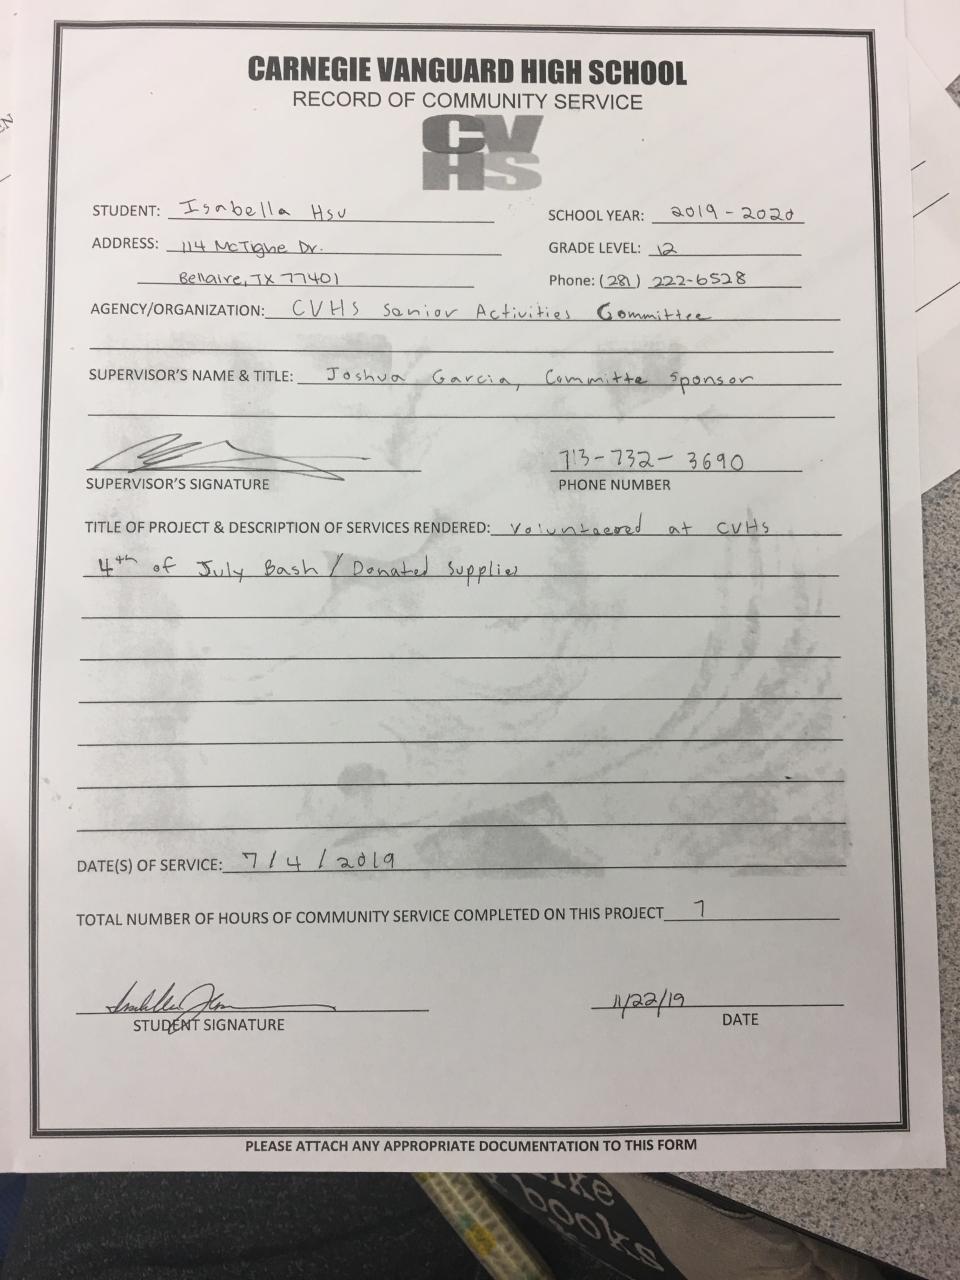 CARNEGIE VANGUARD HIGH SCHOOL
RECORD OF COMMUNITY SERVICE
CV
HS
STUDENT: Isabella Hsu SCHOOL YEAR: 2019-2020
ADDRESS: 114 McTighe Dr. GRADE LEVEL: 12
Bellaire, TX 77401 Phone: (281) 222-6528
AGENCY/ORGANIZATION: CVHS Senior Activities Committee
SUPERVISOR'S NAME & TITLE: Joshua Garcia, Committe Sponsor
713-732-3690
SUPERVISOR'S SIGNATURE PHONE NUMBER
TITLE OF PROJECT & DESCRIPTION OF SERVICES RENDERED: Volunteered at CVHS
4th of July Bash / Donated Supplies
DATE(S) OF SERVICE: 7/4/2019
TOTAL NUMBER OF HOURS OF COMMUNITY SERVICE COMPLETED ON THIS PROJECT 7
11/22/19
STUDENT SIGNATURE DATE
PLEASE ATTACH ANY APPROPRIATE DOCUMENTATION TO THIS FORM
books